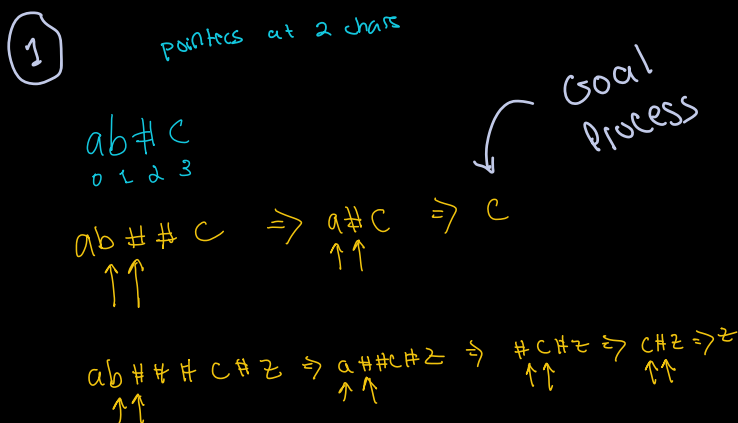 1
pointers at 2 chars
Goal
Process
ab#c
0 1 2 3
ab##c => a#c => c
ab###c#z => a##c#z => #c#z => c#z => z